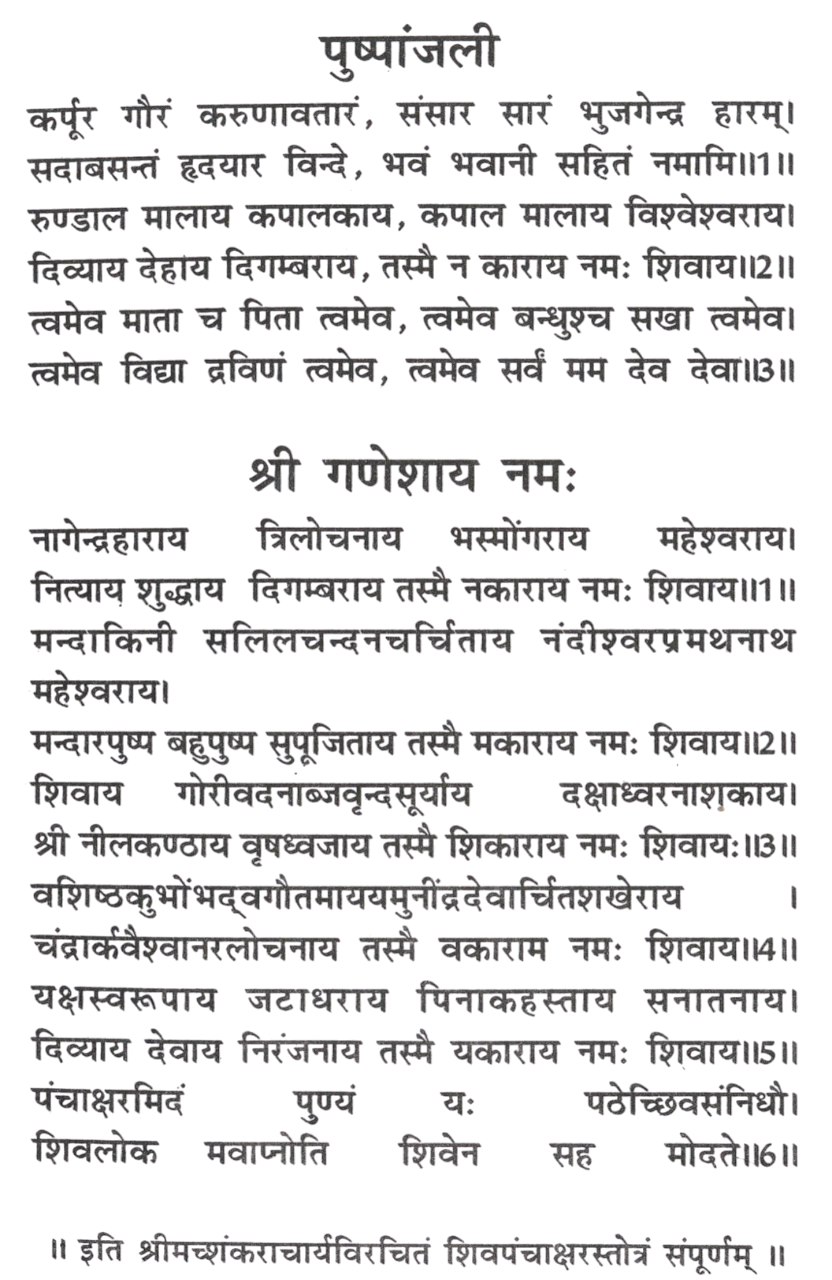 पुष्पांजली
कर्पूर गौरं करुणावतारं, संसार सारं भुजगेन्द्र हारम्।
सदाबसन्तं हृदयार विन्दे, भवं भवानी सहितं नमामि॥1॥
रुण्डाल मालाय कपालकाय, कपाल मालाय विश्वेश्वराय।
दिव्याय देहाय दिगम्बराय, तस्मै न काराय नमः शिवाय॥2॥
त्वमेव माता च पिता त्वमेव, त्वमेव बन्धुश्च सखा त्वमेव।
त्वमेव विद्या द्रविणं त्वमेव, त्वमेव सर्वं मम देव देवा॥3॥
श्री गणेशाय नमः
नागेन्द्रहाराय त्रिलोचनाय भस्मोंगराय महेश्वराय।
नित्याय शुद्धाय दिगम्बराय तस्मै नकाराय नमः शिवाय॥1॥
मन्दाकिनी सलिलचन्दनचर्चिताय नंदीश्वरप्रमथनाथ
महेश्वराय।
मन्दारपुष्प बहुपुष्प सुपूजिताय तस्मै मकाराय नमः शिवाय॥2॥
शिवाय गोरीवदनाब्जवृन्दसूर्याय दक्षाध्वरनाशकाय।
श्री नीलकण्ठाय वृषध्वजाय तस्मै शिकाराय नमः शिवायः॥3॥
वशिष्ठकुभोंभद्वगौतमाययमुनींद्रदेवार्चितशखेराय ।
चंद्रार्कवैश्वानरलोचनाय तस्मै वकाराम नमः शिवाय॥4॥
यक्षस्वरूपाय जटाधराय पिनाकहस्ताय सनातनाय।
दिव्याय देवाय निरंजनाय तस्मै यकाराय नमः शिवाय॥5॥
पंचाक्षरमिदं पुण्यं यः पठेच्छिवसंनिधौ।
शिवलोक मवाप्नोति शिवेन सह मोदते॥6॥
॥ इति श्रीमच्शंकराचार्यविरचितं शिवपंचाक्षरस्तोत्रं संपूर्णम् ॥